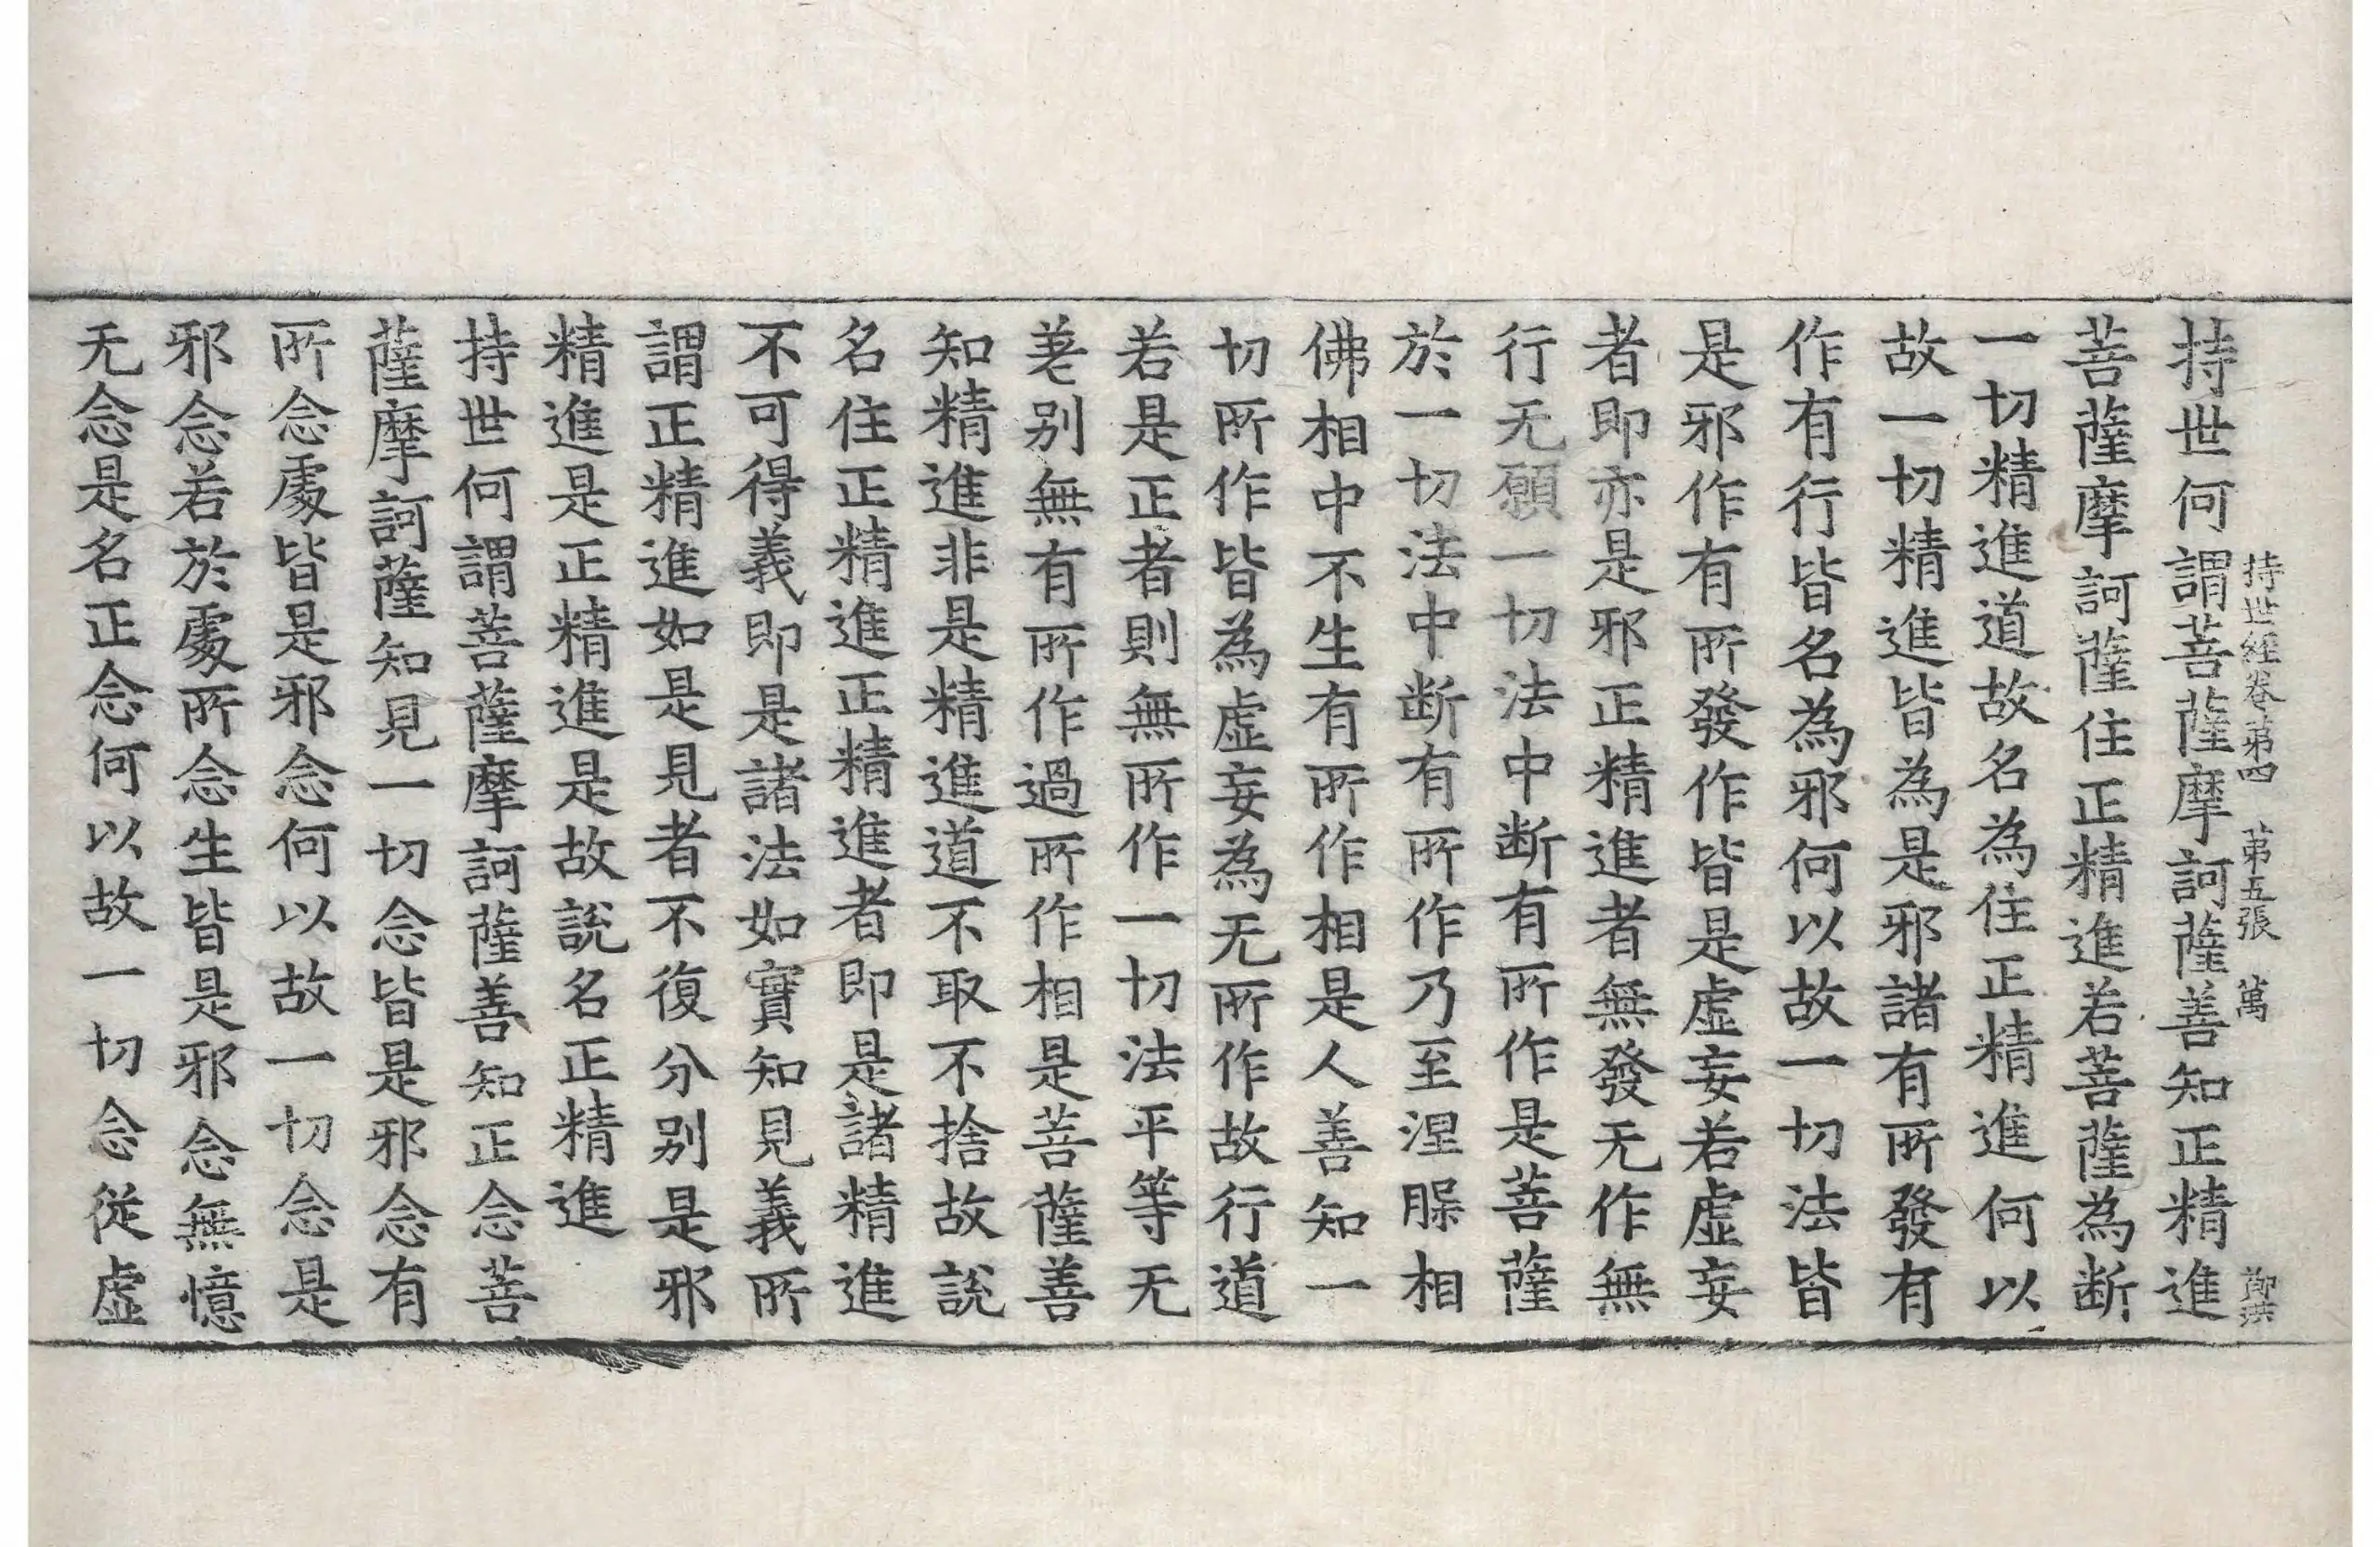 持世經卷第四　第五張　萬　鄭洪
持世何謂菩薩摩訶薩善知正精進
菩薩摩訶薩住正精進若菩薩為断
一切精進道故名為住正精進何以
故一切精進皆為是邪諸有所發有
作有行皆名為邪何以故一切法皆
是邪作有所發作皆是虛妄若虛妄
者即亦是邪正精進者無發无作無
行无願一切法中断有所作是菩薩
於一切法中断有所作乃至涅槃相
佛相中不生有所作相是人善知一
切所作皆為虛妄為无所作故行道
若是正者則無所作一切法平等无
差别無有所作過所作相是菩薩善
知精進非是精進道不取不捨故說
名住正精進正精進者即是諸精進
不可得義即是諸法如實知見義所
謂正精進如是見者不復分别是邪
精進是正精進是故說名正精進
持世何謂菩薩摩訶薩善知正念菩
薩摩訶薩知見一切念皆是邪念有
所念處皆是邪念何以故一切念是
邪念若於處所念生皆是邪念無憶
无念是名正念何以故一切念從虛